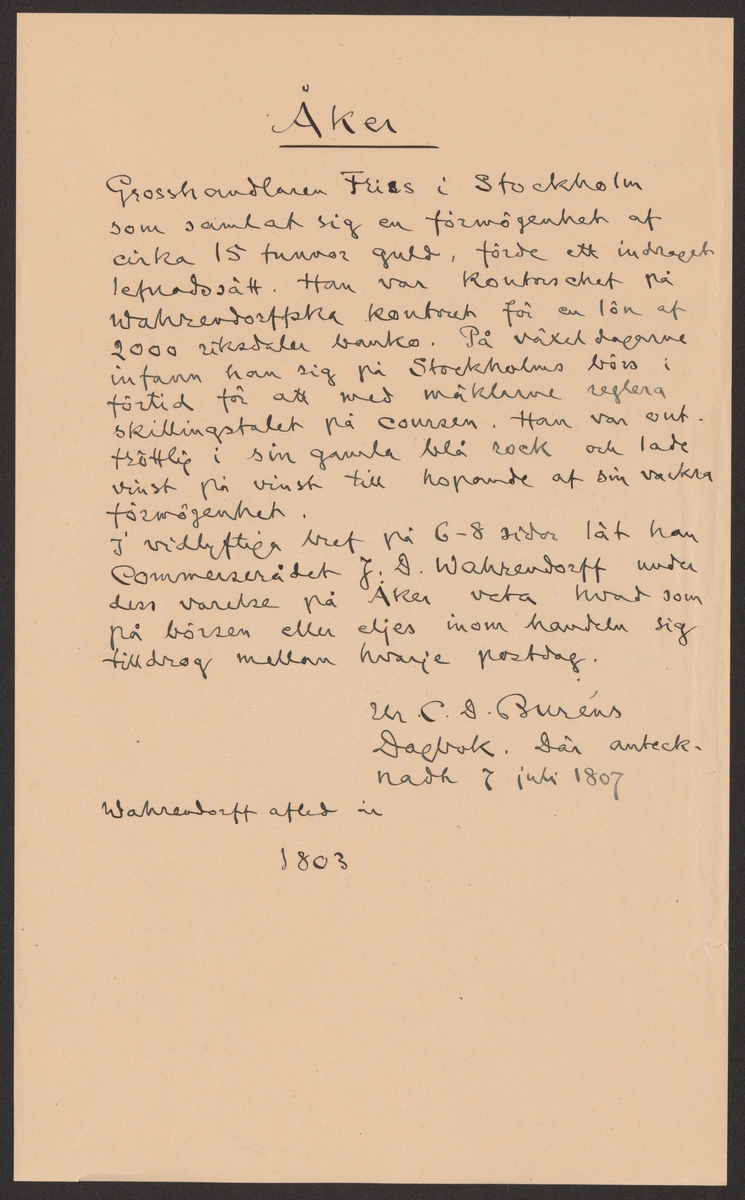 Åker
Grosshandlaren Friis i Stockholm
som samlat sig en förmögenhet af
cirka 15 tunnor guld, förde ett indraget
lefnadssätt. Han var kontorschef på
Wahrendorffska kontoret för en lön af
2000 riksdaler banko. På växeldagarne
infann han sig på Stockholms börs i
förtid för att med mäklarne reglera
skillingstalet på coursen. Han var out-
tröttlig i sin gamla blå rock och lade
vinst på vinst till hopande af sin vackra
förmögenhet.
I vidlyftiga bref på 6-8 sidor lät han
Commerserådet J. D. Wahrendorff under
dess varelse på Åker veta hvad som
på börsen eller eljes inom handeln sig
tilldrog mellan hvarje postdag.
Ur C. D. Buréns
Dagbok. Där anteck-
nadt 7 juli 1807
Wahrendorff afled år
1803